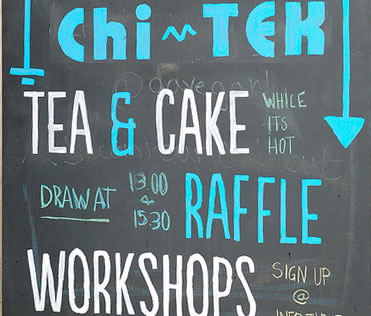 Chi~TEK
TEA & CAKE WHILE ITS HOT
DRAW AT 13:00 & 15:30 RAFFLE
WORKSHOPS SIGN UP @